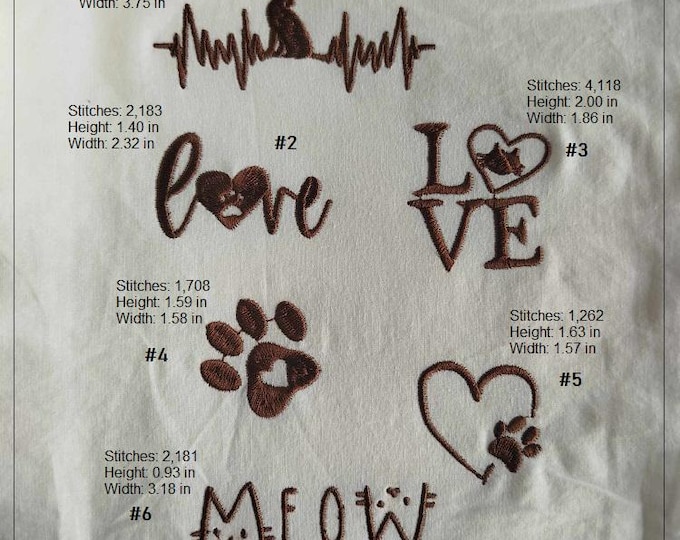 Width: 3.75 in
Stitches: 2,183
Height: 1.40 in
Width: 2.32 in
#2
love
Stitches: 4,118
Height: 2.00 in
Width: 1.86 in
#3
LOVE
Stitches: 1,708
Height: 1.59 in
Width: 1.58 in
#4
Stitches: 1,262
Height: 1.63 in
Width: 1.57 in
#5
Stitches: 2,181
Height: 0.93 in
Width: 3.18 in
#6
MEOW